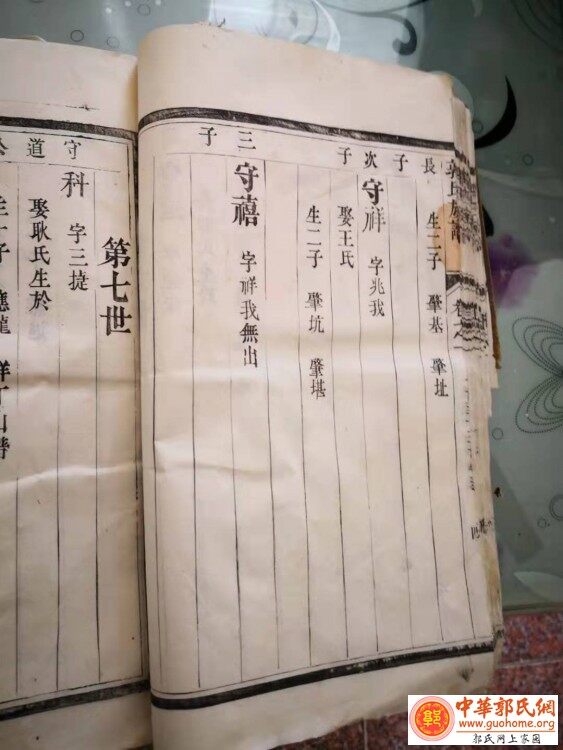 長子
生二子 肇基 肇址
次子
守祥 字兆我
娶王氏
生二子 肇坑 肇堪
三子
守禧 字祥我無出
第七世
守道公
科 字三捷
娶耿氏生於
生一子 應龍 祥
中華郭氏網
www.guohome.org
郭氏网上家园